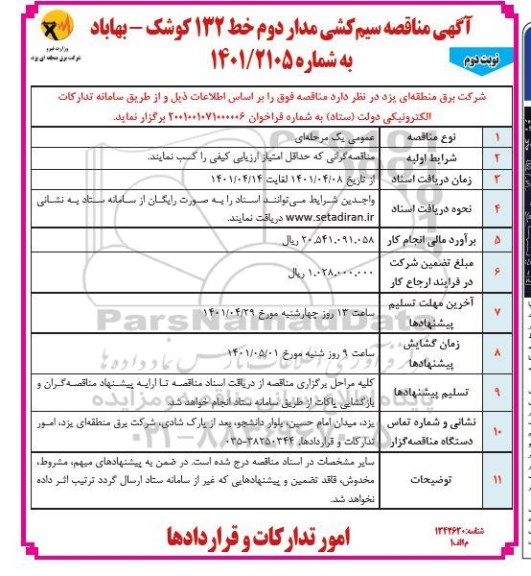 آگهی مناقصه سیم‌کشی مدار دوم خط ۱۳۲ کوشک – بهاباد
به شماره ۱۴۰۱/۲۱۰۵
نوبت دوم
وزارت نیرو
شرکت برق منطقه ای یزد
شرکت برق منطقه‌ای یزد در نظر دارد مناقصه فوق را بر اساس اطلاعات ذیل و از طریق سامانه تدارکات
الکترونیکی دولت (ستاد) به شماره فراخوان ۲۰۰۱۰۰۱۰۷۱۰۰۰۰۰۶ برگزار نماید.
۱ نوع مناقصه عمومی یک مرحله‌ای
۲ شرایط اولیه مناقصه‌گرانی که حداقل امتیاز ارزیابی کیفی را کسب نمایند.
۳ زمان دریافت اسناد از تاریخ ۱۴۰۱/۰۴/۰۸ لغایت ۱۴۰۱/۰۴/۱۴
۴ نحوه دریافت اسناد واجدین شرایط می‌توانند اسناد را به صورت رایگان از سامانه ستاد به نشانی
www.setadiran.ir دریافت نمایند.
۵ برآورد مالی انجام کار ۲۰،۵۴۱،۰۹۱،۰۵۸ ریال
۶ مبلغ تضمین شرکت
در فرایند ارجاع کار
۱،۰۲۸،۰۰۰،۰۰۰ ریال
۷ آخرین مهلت تسلیم
پیشنهادها
ساعت ۱۳ روز چهارشنبه مورخ ۱۴۰۱/۰۴/۲۹
۸ زمان گشایش
پیشنهادها
ساعت ۹ روز شنبه مورخ ۱۴۰۱/۰۵/۰۱
۹ تسلیم پیشنهادها کلیه مراحل برگزاری مناقصه از دریافت اسناد مناقصه تا ارایه پیشنهاد مناقصه‌گران و
بازگشایی پاکات از طریق سامانه ستاد انجام خواهد شد.
۱۰ نشانی و شماره تماس
دستگاه مناقصه‌گزار
یزد، میدان امام حسین، بلوار دانشجو، بعد از پارک شادی، شرکت برق منطقه‌ای یزد، امور
تدارکات و قراردادها، ۳۸۲۵۰۳۴۴-۰۳۵
۱۱ توضیحات سایر مشخصات در اسناد مناقصه درج شده است. در ضمن به پیشنهادهای مبهم، مشروط،
مخدوش، فاقد تضمین و پیشنهادهایی که غیر از سامانه ستاد ارسال گردد ترتیب اثر داده
نخواهد شد.
امور تدارکات و قراردادها
شناسه: ۱۳۴۴۶۳۰
م الف
ParsNamadData